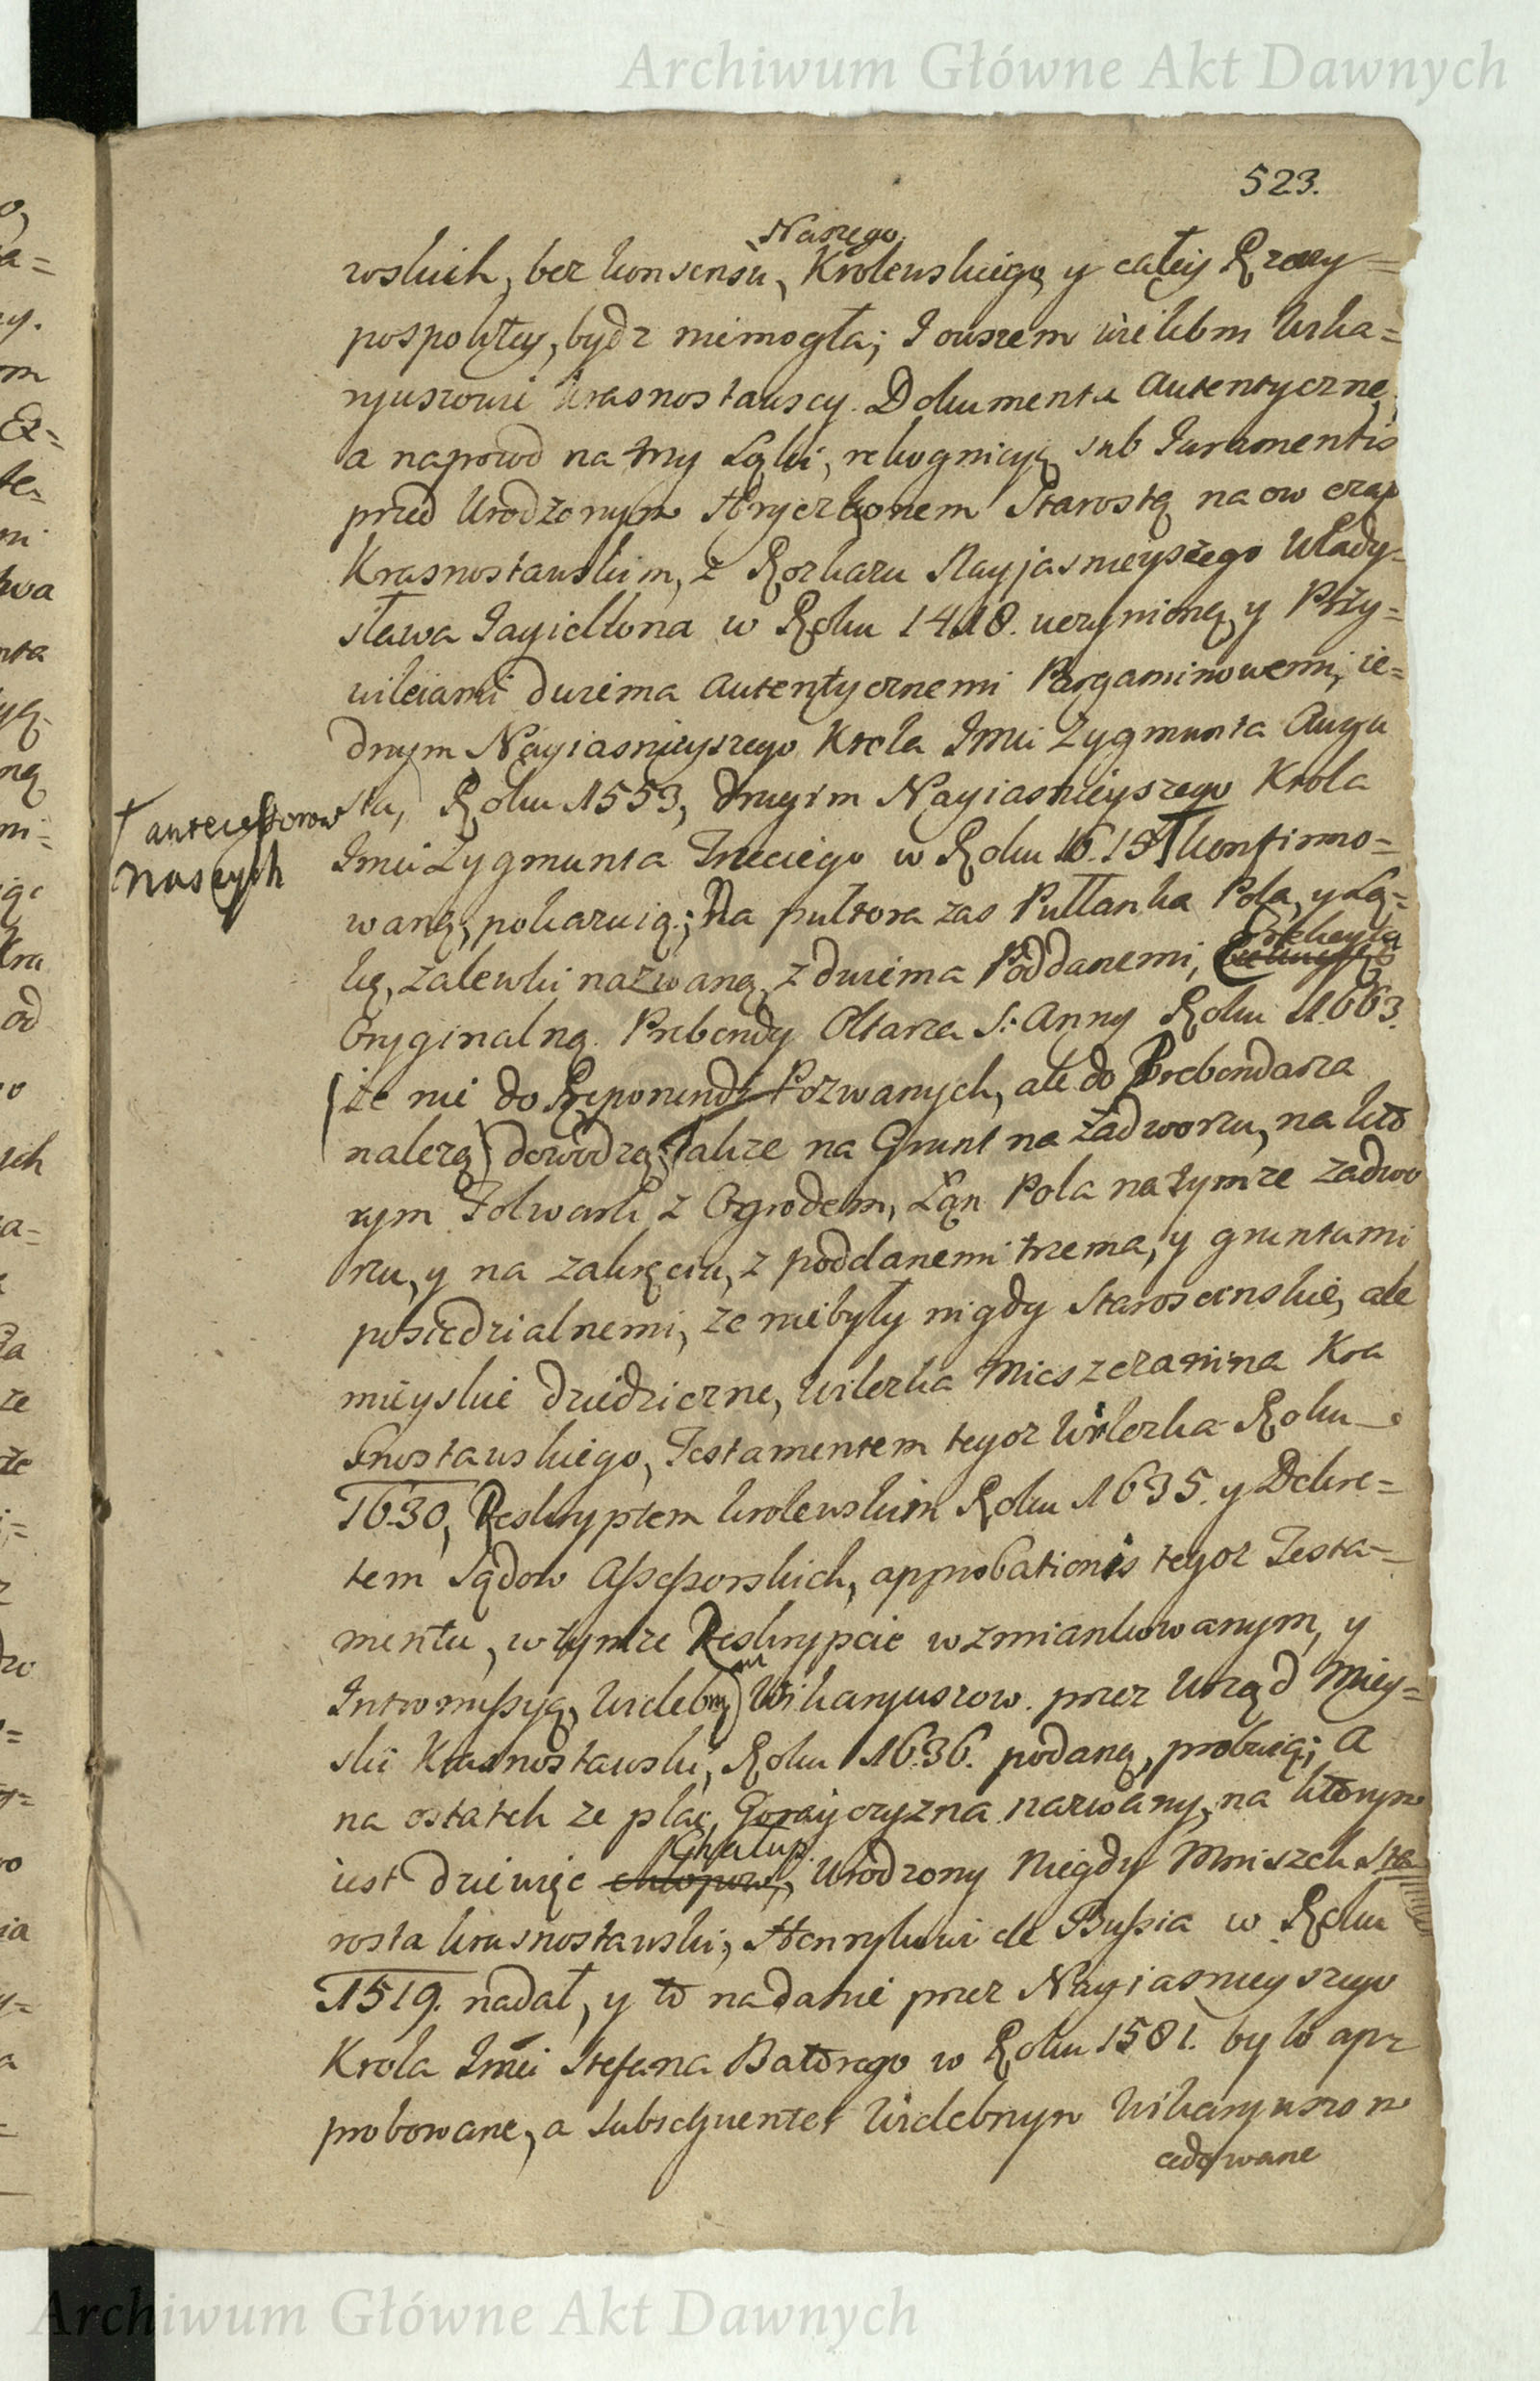 Archiwum Główne Akt Dawnych
523.
Naszego
wskich, bez konsensu, Krolewskiego, y całey Rzeczy=
pospolitey, bydz niemogła; I owszem wielebni Wika=
ryuszowie Krasnostawscy Dokumenta autentyczne,
a naprzod na trzy Łąki, rekognicyą sub Iuramentis
przed Urodzonym Hryczkonem Starostą na ow czas
Krasnostawskim, z Rozkazu Nayjasnieyszego Włady=
sława Jagiellona w Roku 1418. uczynioną, y Przy=
wileiami dwiema autentycznemi Pargaminowemi, ie=
dnym Nayiasnieyszego Krola Imci Zygmunta Augu
sta, Roku 1553, drugim Nayiasnieyszego Krola
† antecessorow
naszych
Imci Zygmunta Trzeciego w Roku 1615 † konfirmo=
waną, pokazuią; Na pułtora zas Pułłanka Pola, y Łą=
kę, Zalewki nazwaną, z dwiema Poddanemi,
Oryginalną Prebendy Ołtarza S. Anny Roku 1663.
(że nie do Reponendy Pozwanych, ale do Prebendarza
nalezą) dowodzą; Takze na Grunt na Zadworzu, na kto
rym Folwark z Ogrodem, Łan Pola na tymze Zadwo
rzu, y na zakręciu, z poddanemi trzema, y gruntami
posiedzialnemi, ze niebyły nigdy Staroscinskie, ale
mieyskie dziedziczne, Wilczka Mieszczanina Kra
snostawskiego, Testamentem tegoz Wilczka Roku
1630, Reskryptem krolewskim Roku 1635. y Dekre=
tem Sądow Assessorskich, approbationis tegoz Testa=
mentu, w tymze Reskrypcie wzmiankowanym, y
Intromissyą, Wielebnym Wikaryuszow. przez Urząd Miey=
ski Krasnostawski, Roku 1636. podaną, probuią; A
na ostatek ze plac, Gorayczyzna nazwany, na ktorym
Chałup.
iest dziewięc chłopow, Urodzony Niegdy Mniszek Sta
rosta krasnostawski, Henrykowi de Bussia w Roku
1519. nadał, y to nadanie przez Nayiasnieyszego
Krola Imci Stefana Batorego w Roku 1581. było ap=
probowane, a subsequenter Wielebnym Wikaryuszom
cedowane
Archiwum Główne Akt Dawnych